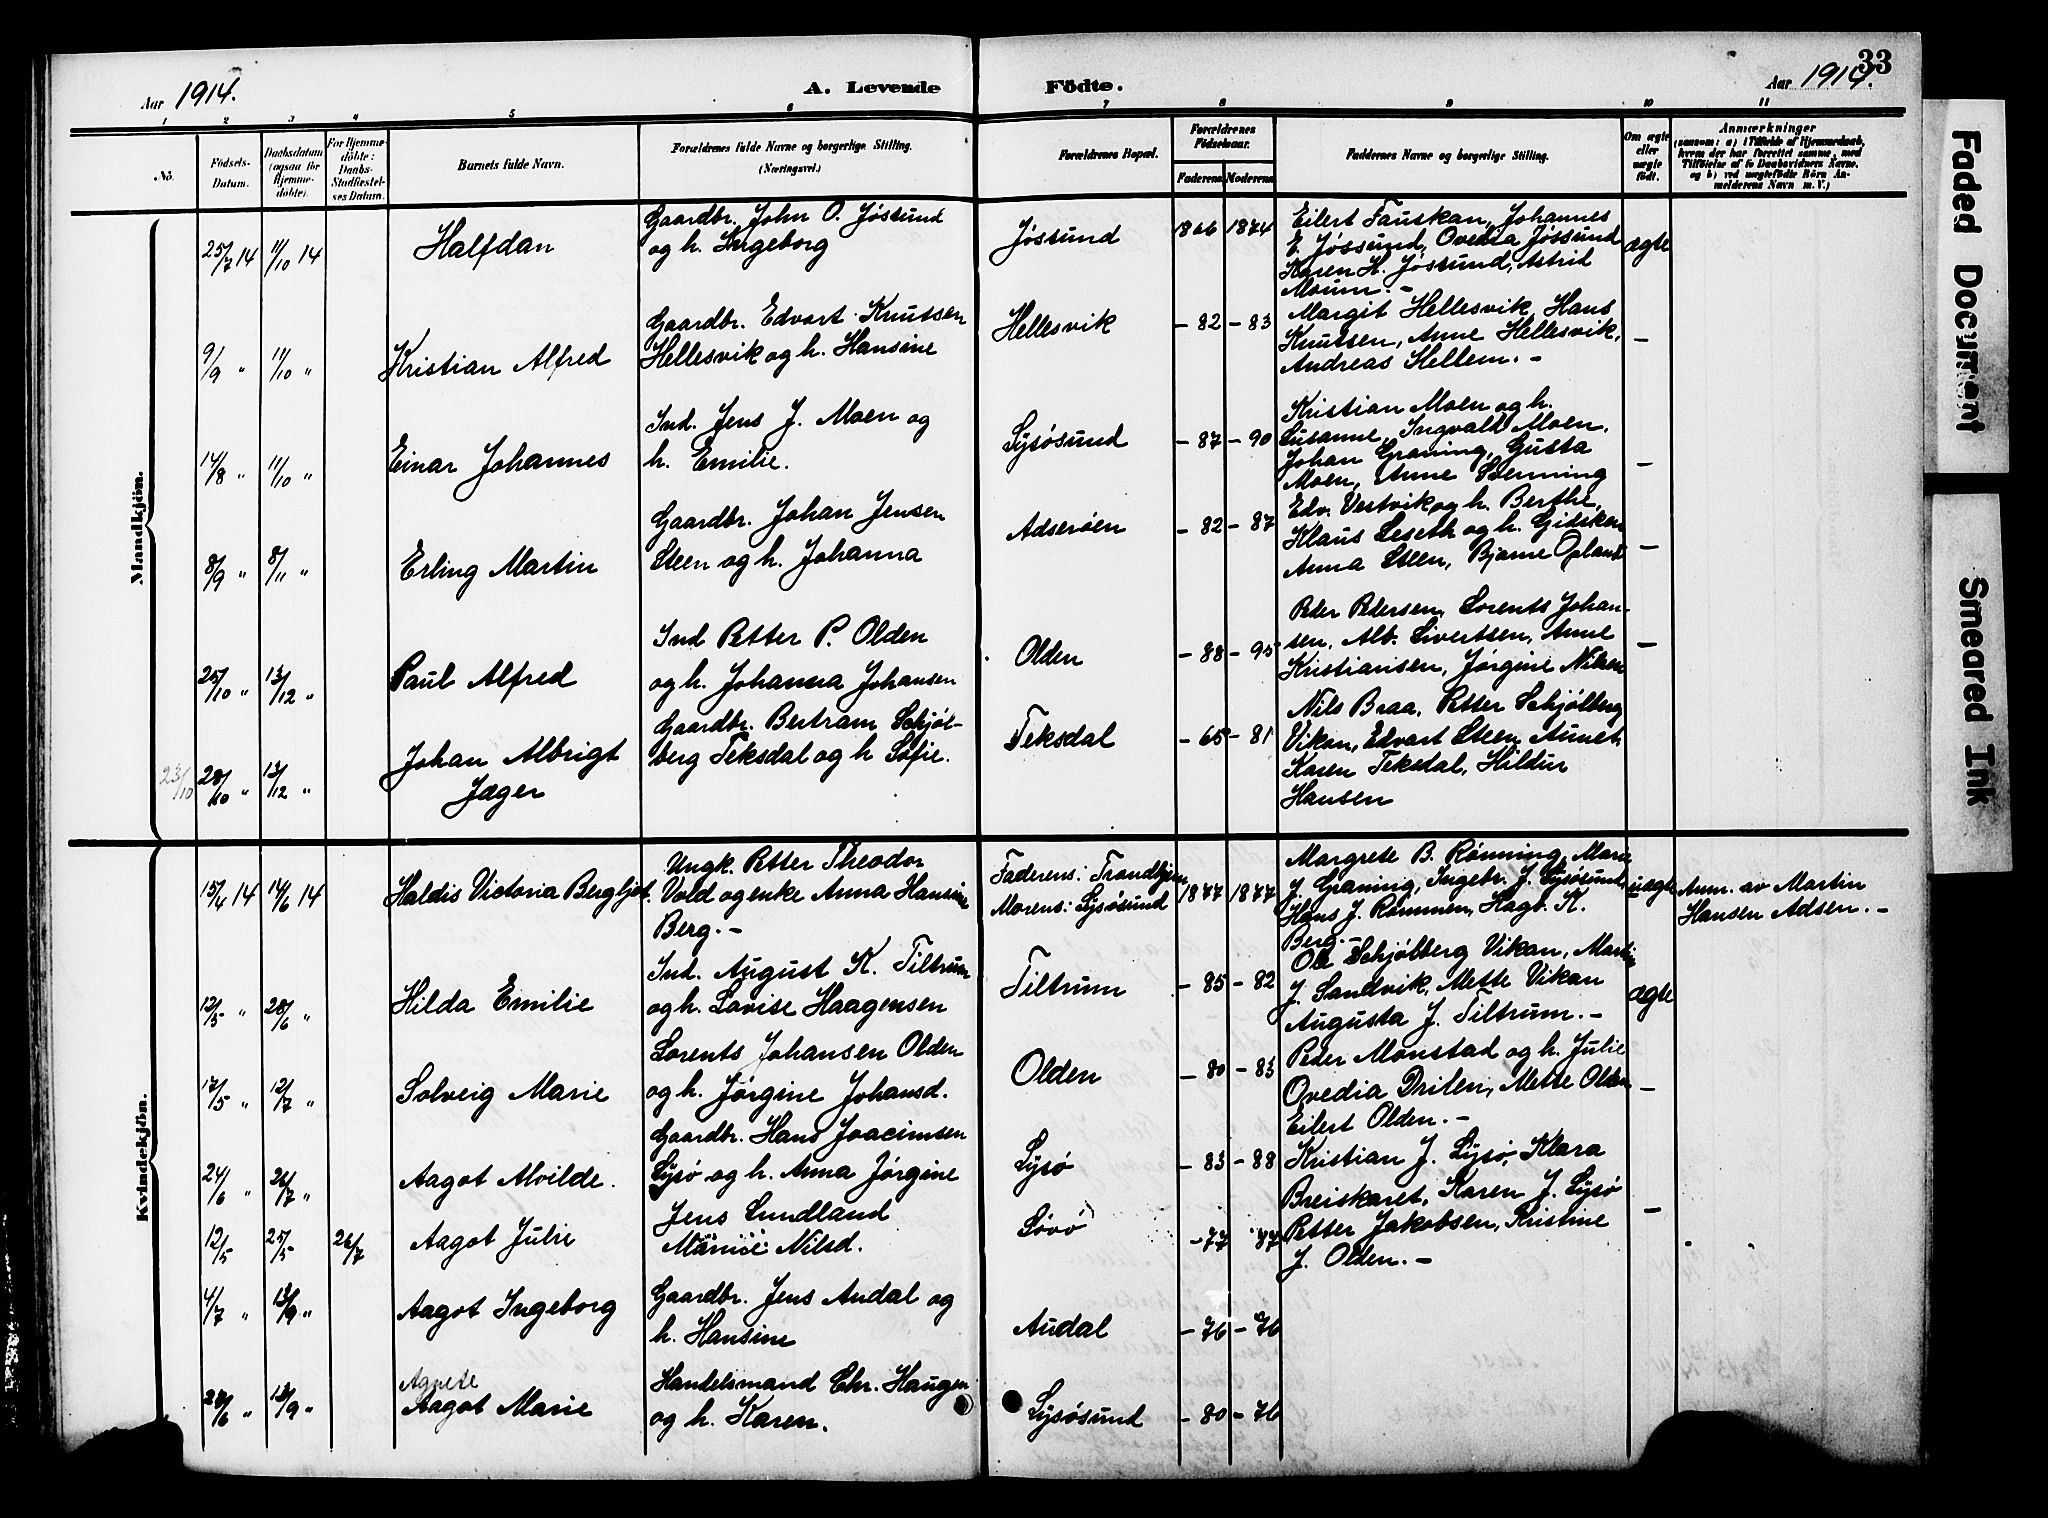 33
Aar 1914.
A. Levende
Födte.
Aar 1914.
1 2 3 4 5 6 7 8 9 10 11
No.
Födsels-
Datum.
Daabsdatum
(ogsaa for
Hjemme-
döbte).
For Hjemme-
döbte:
Daabs-
Stadfæstel-
ses Datum.
Barnets fulde Navn.
Forældrenes fulde Navne og borgerlige Stilling.
(Næringsvei.)
Forældrenes Bopæl.
Forældrenes
Födselsaar.
Faderens Moderens
Faddernes Navne og borgerlige Stilling.
Om ægte
eller
uægte
födt.
Anmærkninger
(saasom: a) i Tilfælde af Hjemmedaab,
hvem der har forrettet samme, med
Tilföielse af to Daabsvidners Navne,
og b) ved uægtefödte Börn An-
melderens Navn m. V.)
Mandkjön.
25/7 14 11/10 14
Halfdan
Gaardbr. John O. Jössund
og h. Ingeborg
Jössund
1866 1874
Eilert Fauskan, Johannes
E. Jössund, Ovedia Jössund
Karen H. Jössund, Astrid
Moum. -
ægte
9/9 " 11/10 "
Kristian Alfred
Gaardbr. Edvart Knutsen
Hellesvik og h. Hansine
Hellesvik
- 82 - 83
Margit Hellesvik, Hans
Knutsen, Anne Hellesvik,
Andreas Hellem. -
-
14/8 " 11/10 "
Einar Johannes
Ind. Jens J. Moen og
h. Emilie.
Lysösund
- 87 - 90
Kristian Moen og h.
Susanne, Ingvald Moen,
Johan Graning, Gusta
Moen, Anne Senning
-
8/9 " 8/11 "
Erling Martin
Gaardbr. Johan Jensen
Steen og h. Johanna
Adseröen
- 82 - 87
Edv. Vestvik og h. Berthe,
Klaus Leseth og h. Gidsken
Anna Steen, Bjarne Opland
-
25/10 " 13/12 "
Paul Alfred
Ind Petter P. Olden
og h. Johanna Johansen
Olden
- 88 - 95
Peder Pedersen, Lorents Johan-
sen, Alb. Sivertsen, Anne
Kristiansen, Jörgine Nilsen
-
23/10 28/10 " 13/12 "
Johan Albrigt
Jæger
Gaardbr. Bertram Schjöl-
berg Teksdal og h Sofie.
Teksdal
- 65 - 81
Nils Braa, Petter Schjölberg
Vikan, Edvart Steen Aunet
Karen Teksdal, Hildur
Hansen
Kvindekjön.
15/4 14 14/6 14
Haldis Victoria Bergljot.
Ungk. Petter Theodor
Vold og enke Anna Hansine
Berg. -
Faderens: Trondhjem
Morens: Lysösund
1877 1877
Margrete B. Rönning, Marie
J. Graning, Ingebr. J. Lysösund,
Hans J. Römmen, Hagb. K.
Berg. -
uægte
Anm. av Martin
Hansen Adsen. -
12/5 " 28/6 "
Hilda Emilie
Ind. August K. Tiltrum
og h. Lovise Haagensen
Tiltrum
- 85 - 82
Ole Schjölberg Vikan, Martin
J. Sandvik, Mette Vikan
Augusta J. Tiltrum. -
ægte
17/5 " 12/7 "
Solveig Marie
Lorents Johansen Olden
og h. Jörgine Johansd.
Olden
- 80 - 83
Peder Monstad og h. Julie
Ovedia Drilen, Mette Olden
Eilert Olden. -
-
24/6 " 26/7 "
Aagot Alvilde.
Gaardbr. Hans Joacimsen
Lysö og h. Anna Jörgine
Lysö
- 83 - 88
Kristian J. Lysö, Klara
Breiskaret, Karen J. Lysö
-
12/5 25/5 26/7
Aagot Julie
Jens Sundland
Nilsd.
Lövö
- 77 87
Petter Jakobsen, Kristine
J. Olden. -
4/7 " 13/9 "
Aagot Ingeborg
Gaardbr. Jens Audal og
h. Hansine
Audal
- 76 - 76
28/6 " 13/9 "
Agnete
Aagot Marie
Handelsmand Chr. Haugen
og h. Karen.
Lysösund
- 80 - 76
Faded Document
Smeared Ink